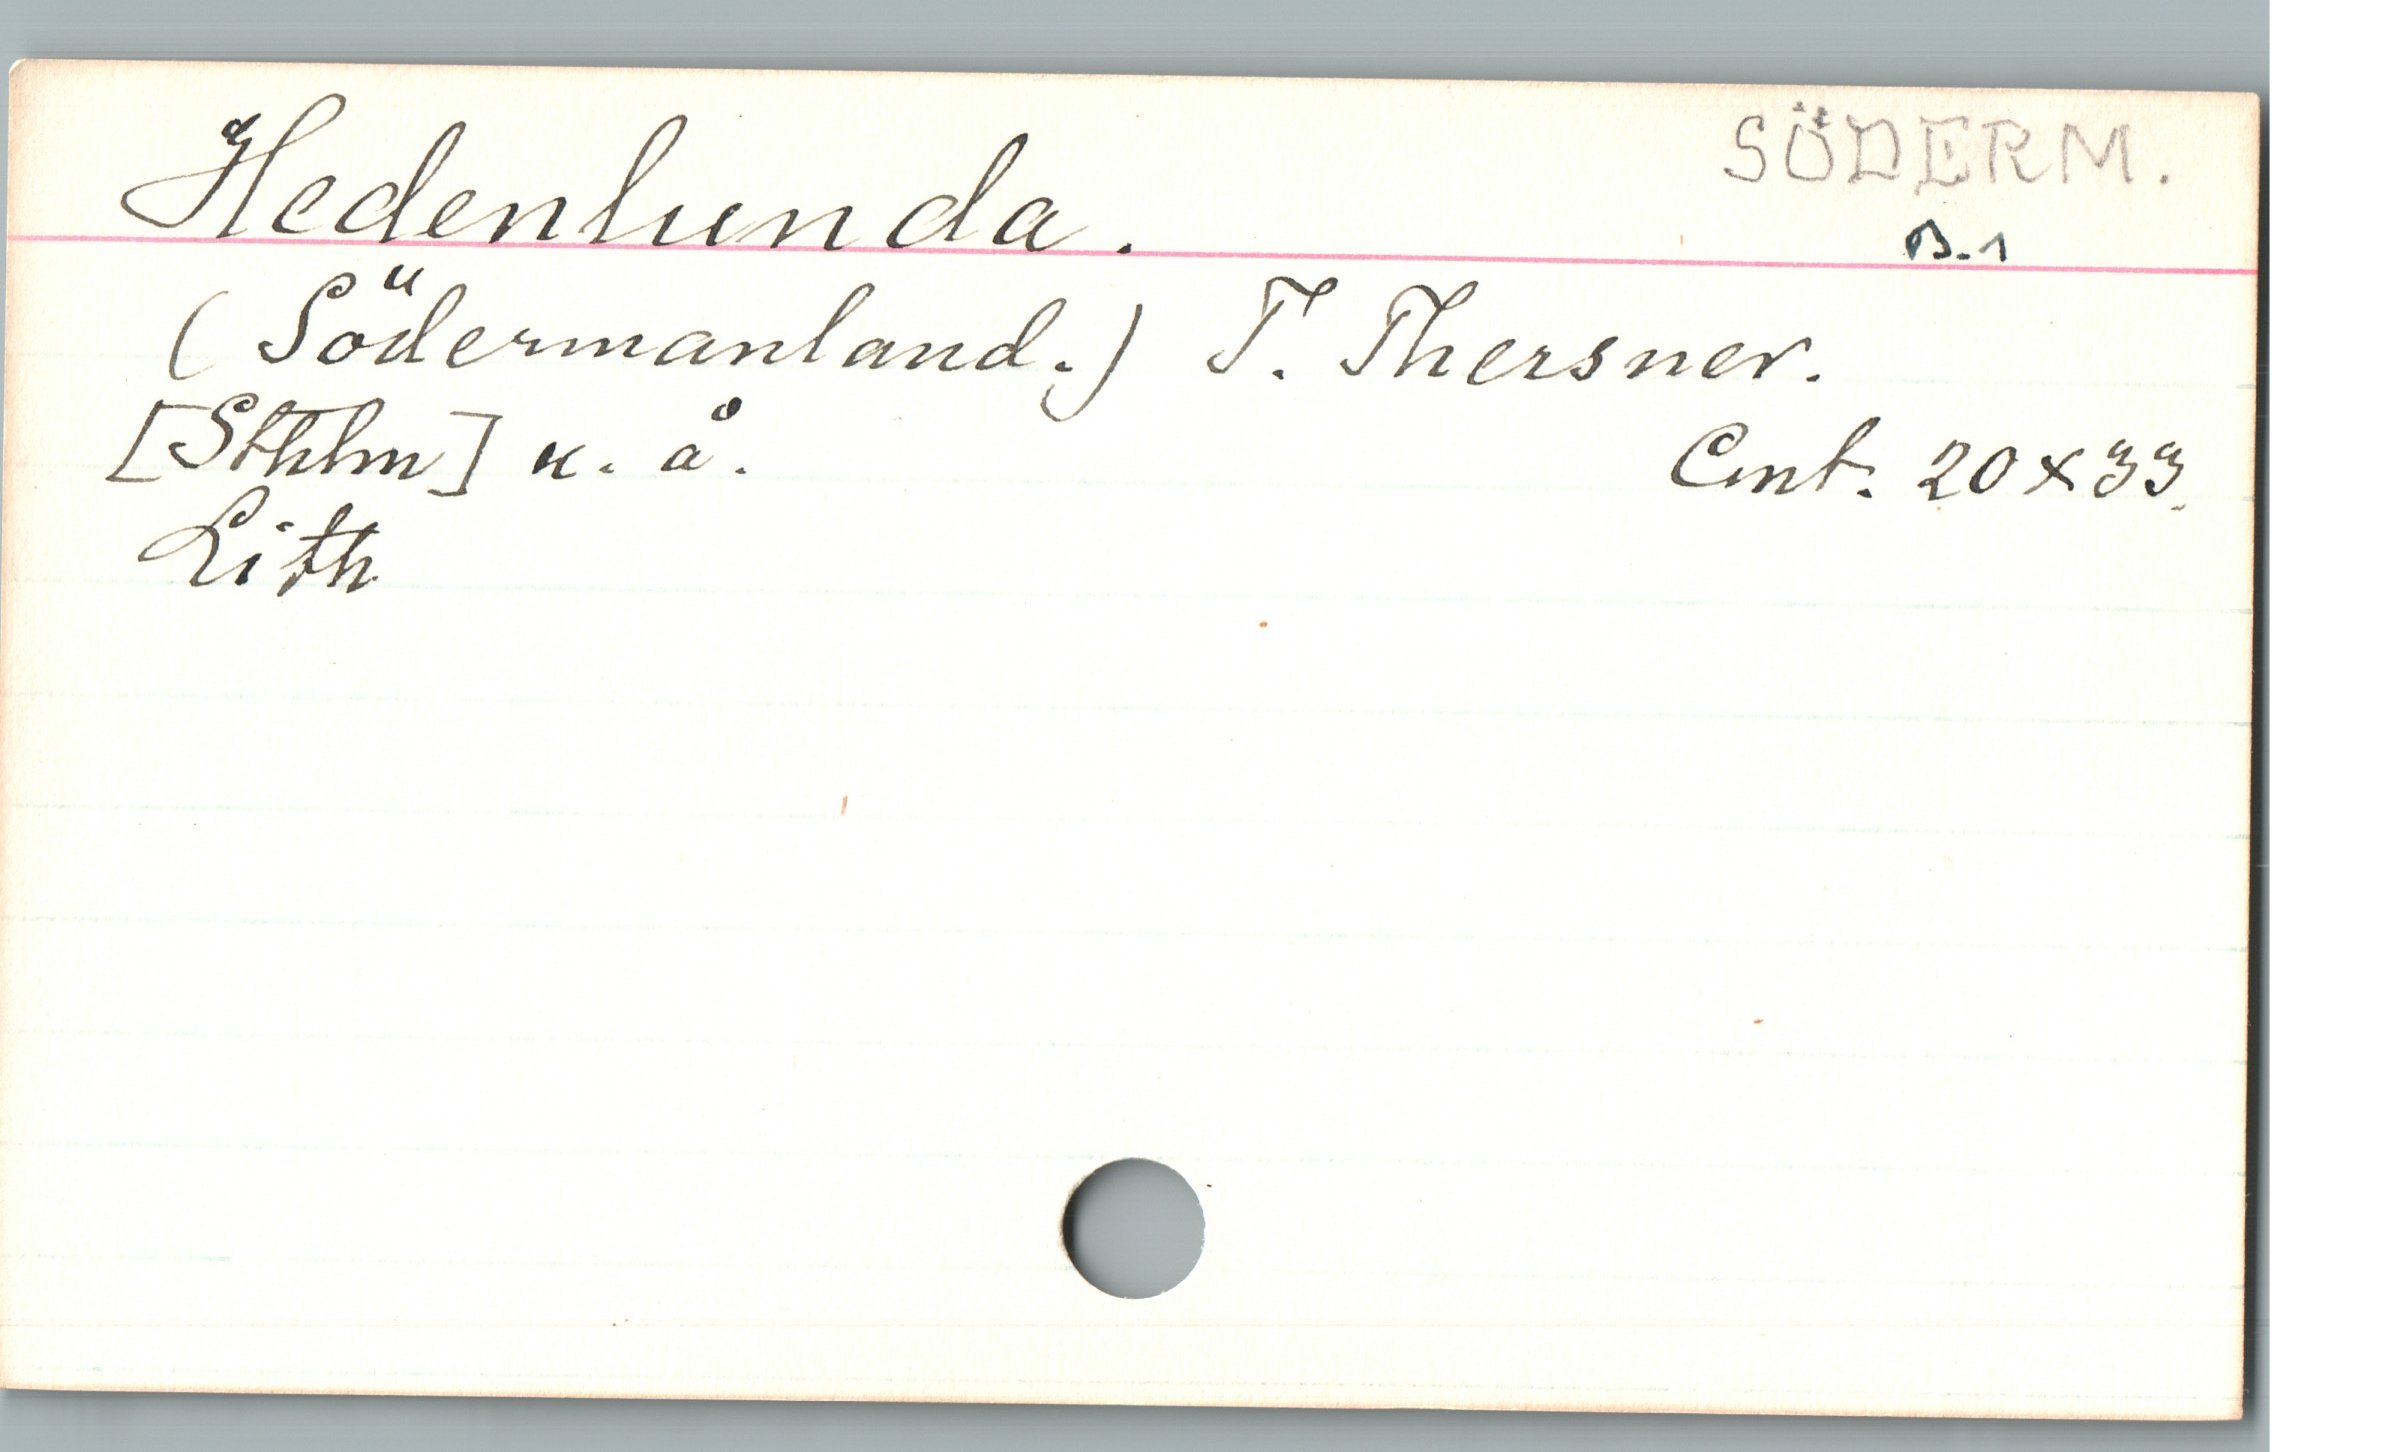 Hedenlunda.
SÖDERM.
B.1
(Södermanland.) T. Thersner.
[Sthlm] u. å.
Cmt. 20x33.
Lith